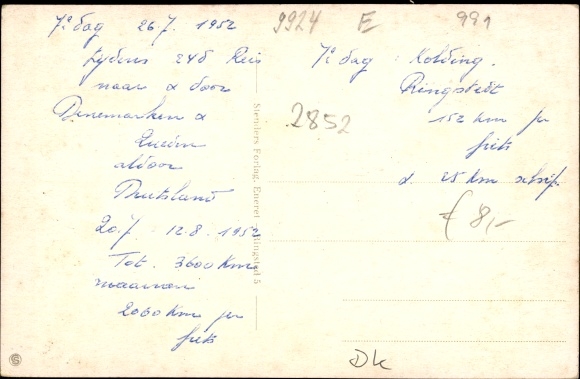 7e dag 26.7. 1952
tijdens 24d Reis
naar & door
Denemarken &
aldoor
Duitsland
20.7 - 12.8. 1952
Tot. 3600 Km
waarvan
2060 Km per
fiets
9924 E 991
7e dag : Kolding.
Ringstedt
152 km per
fiets
& 25 km schip.
2852
€ 8,-
Stenders Forlag. Eneret Ringsted 5
DK
S